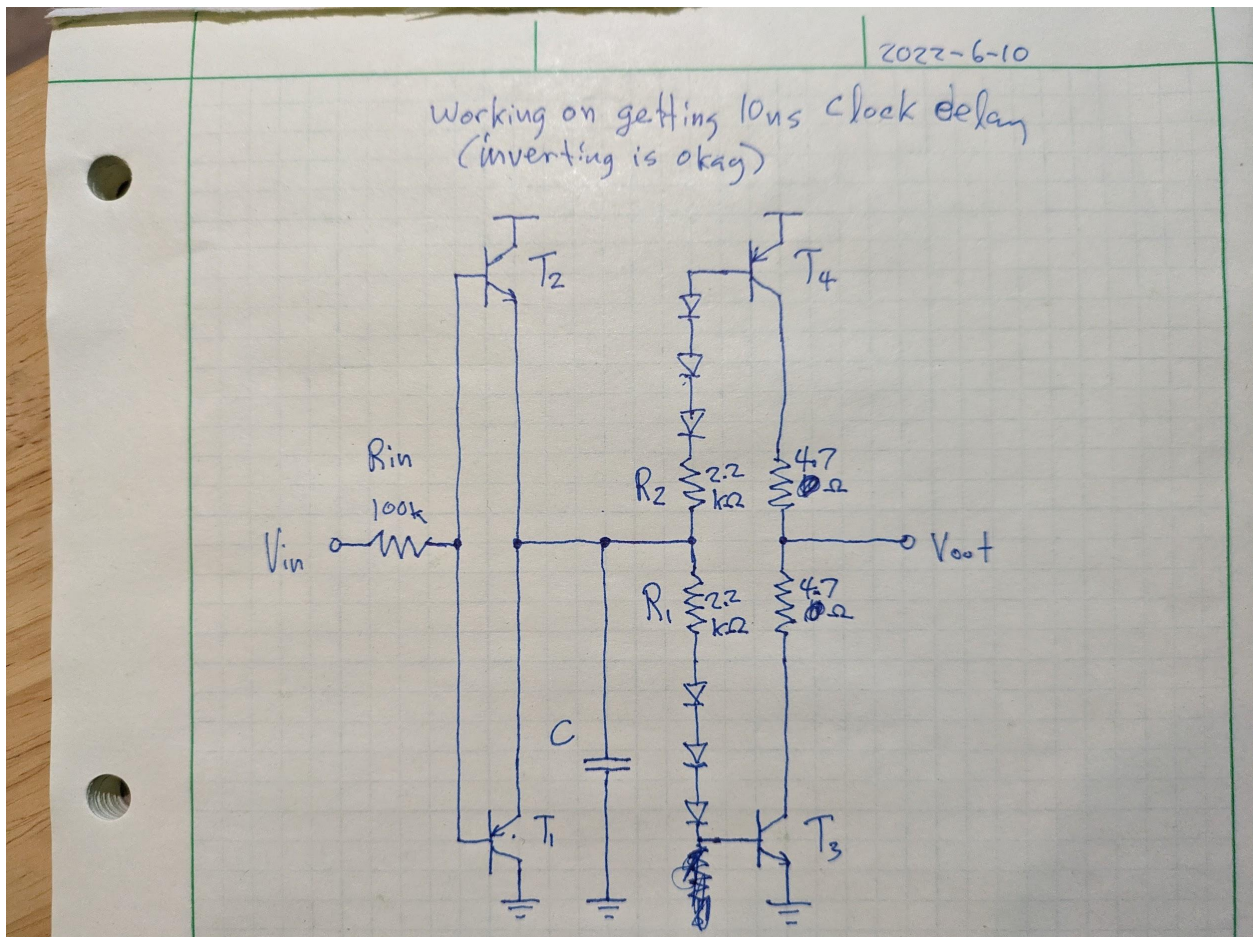 2022-6-10
Working on getting 10ns Clock delay
(inverting is okay)
T2
T4
Rin
100k
R2 2.2 kΩ
4.7 Ω
Vin
Vout
R1 2.2 kΩ
4.7 Ω
C
T1
T3